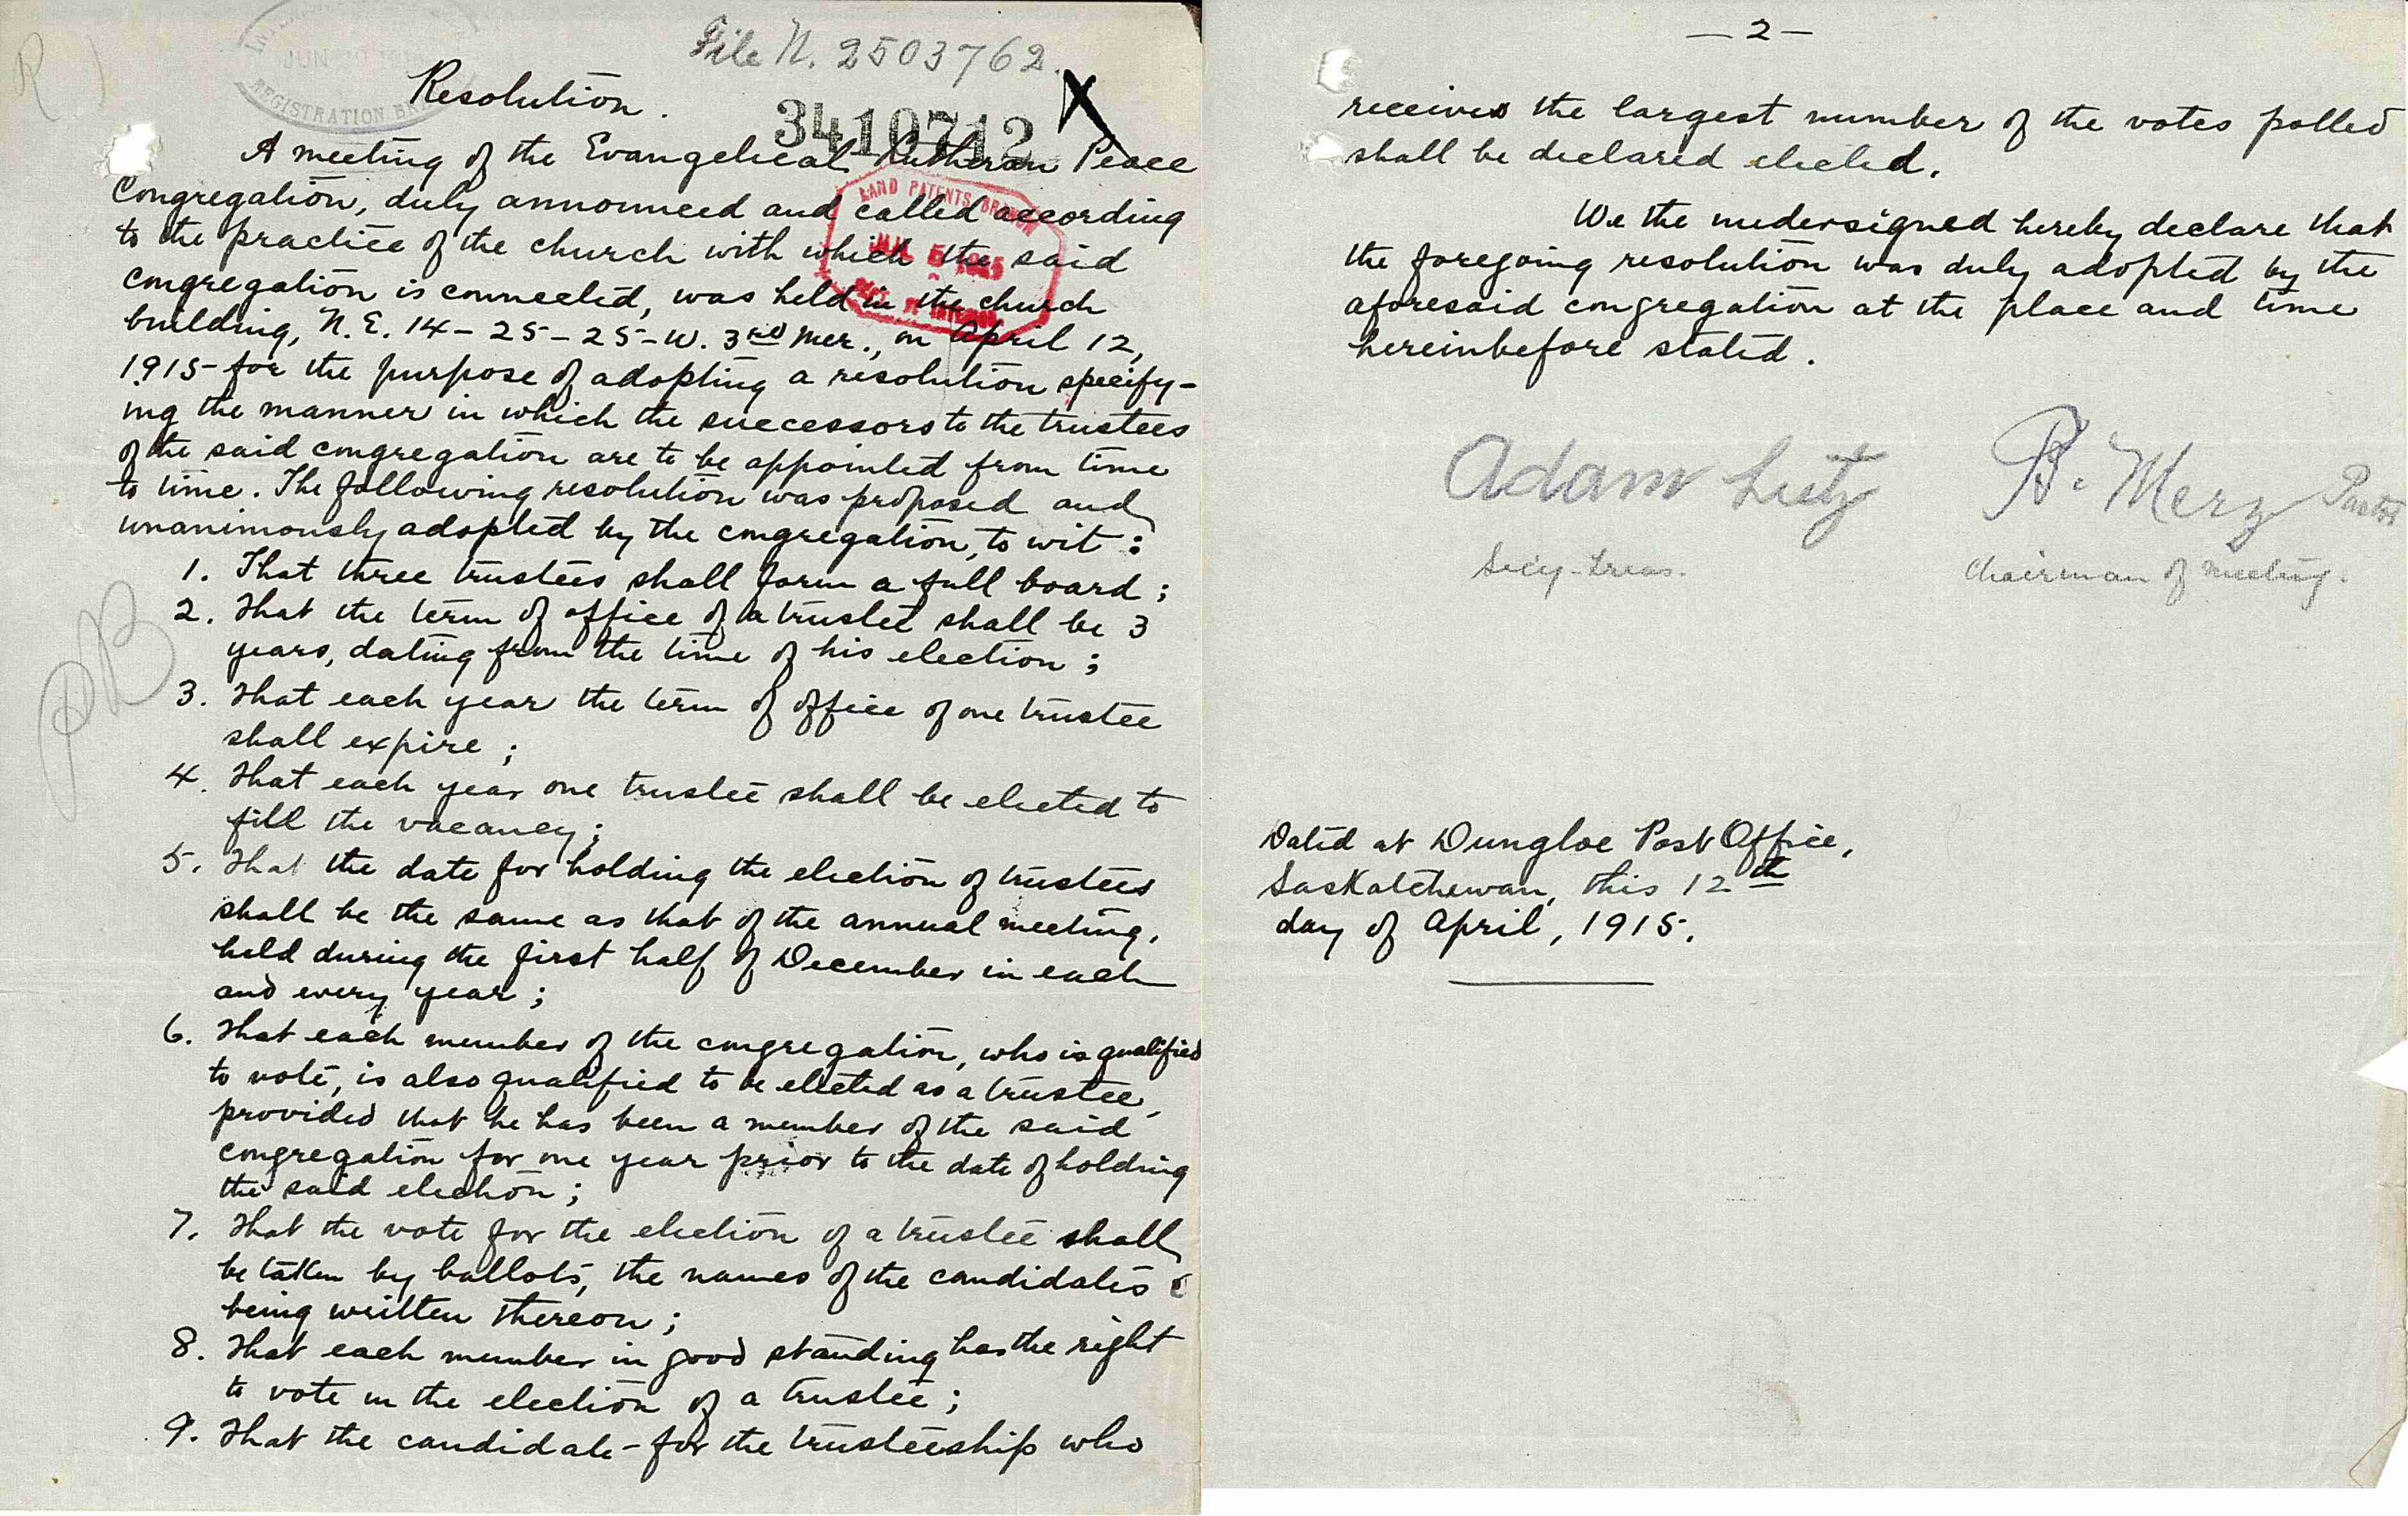 File N. 2503762.
REGISTRATION
JUN
Resolution.
3410712
X
R
A meeting of the Evangelical Lutheran Peace
Congregation, duly announced and called according
to the practice of the church with which the said
congregation is connected, was held in the church
building, N. E. 14 - 25 - 25 - W. 3rd Mer., on April 12,
1915 for the purpose of adopting a resolution specify-
ing the manner in which the successors to the trustees
of the said congregation are to be appointed from time
to time. The following resolution was proposed and
unanimously adopted by the congregation, to wit:
LAND PATENTS BRANCH
1. That three trustees shall form a full board;
2. That the term of office of a trustee shall be 3
years, dating from the time of his election;
3. That each year the term of office of one trustee
shall expire;
4. That each year one trustee shall be elected to
fill the vacancy;
5. That the date for holding the election of trustees
shall be the same as that of the annual meeting,
held during the first half of December in each
and every year;
6. That each member of the congregation, who is qualified
to vote, is also qualified to be elected as a trustee,
provided that he has been a member of the said
congregation for one year prior to the date of holding
the said election;
7. That the vote for the election of a trustee shall
be taken by ballots, the names of the candidates
being written thereon;
8. That each member in good standing has the right
to vote in the election of a trustee;
9. That the candidate for the trusteeship who
— 2 —
receives the largest number of the votes polled
shall be declared elected.
We the undersigned hereby declare that
the foregoing resolution was duly adopted by the
aforesaid congregation at the place and time
hereinbefore stated.
Adam Lutz
Secy-Treas.
B. Merz Pastor
Chairman of meeting.
Dated at Dungloe Post Office,
Saskatchewan, this 12th
day of April, 1915.